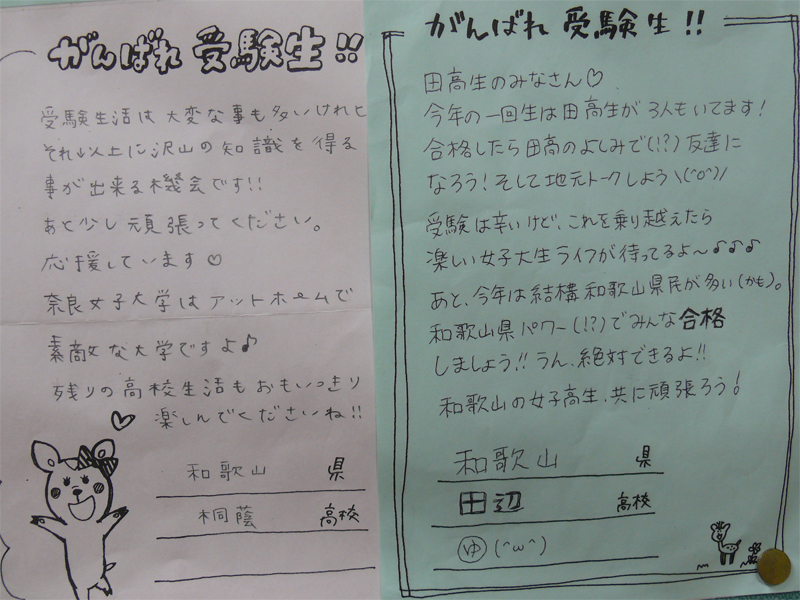 がんばれ 受験生!!
受験生活は大変な事も多いけれど
それ以上に沢山の知識を得る
事が出来る機会です!!
あと少し頑張ってください。
応援しています♡
奈良女子大学はアットホームで
素敵な大学ですよ♪
残りの高校生活もおもいっきり
楽しんでくださいね!!
和歌山 県
桐蔭 高校
がんばれ 受験生!!
田高生のみなさん♡
今年の一回生は田高生が3人もいてます!
合格したら田高のよしみで(!?)友達に
なろう!そして地元トークしよう\(^o^)/
受験は辛いけど、これを乗り越えたら
楽しい女子大生ライフが待ってるよ〜♪♪♪
あと、今年は結構和歌山県民が多い(かも)。
和歌山県パワー(!?)でみんな合格
しましょう!!うん、絶対できるよ!!
和歌山の女子高生、共に頑張ろう!
和歌山 県
田辺 高校
ゆ (^ω^)